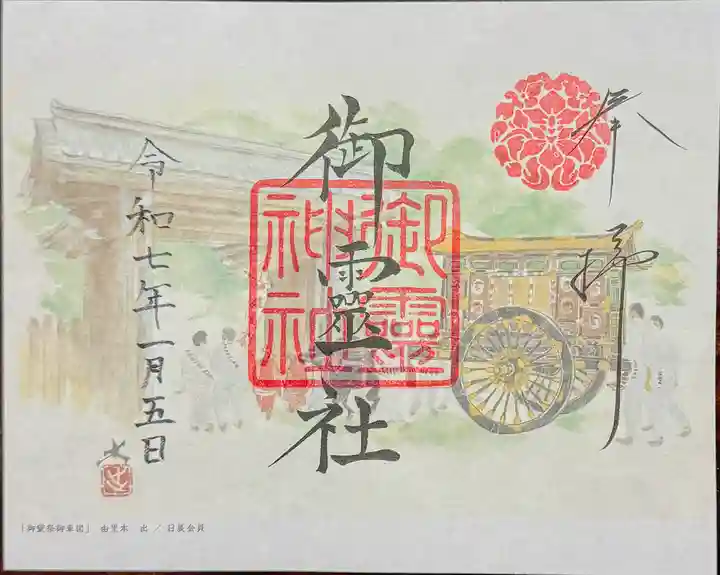 奉拝
御靈社
御靈神社
令和七年一月五日
「御靈祭御車図」 由里本 出 ／ 日展会員